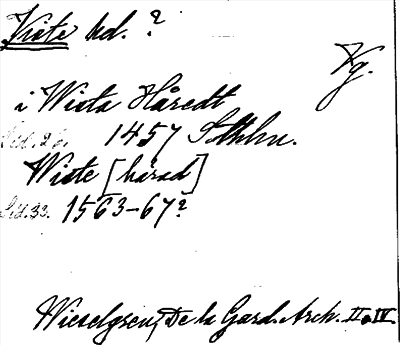 Viste hd. ?
Vg.
i Wista Häredt
Sid. 26. 1457 Sthlm.
Wiste [härad]
Sid. 33. 1563-67?
Wieselgren, De la Gard. Arch. II o. IV.